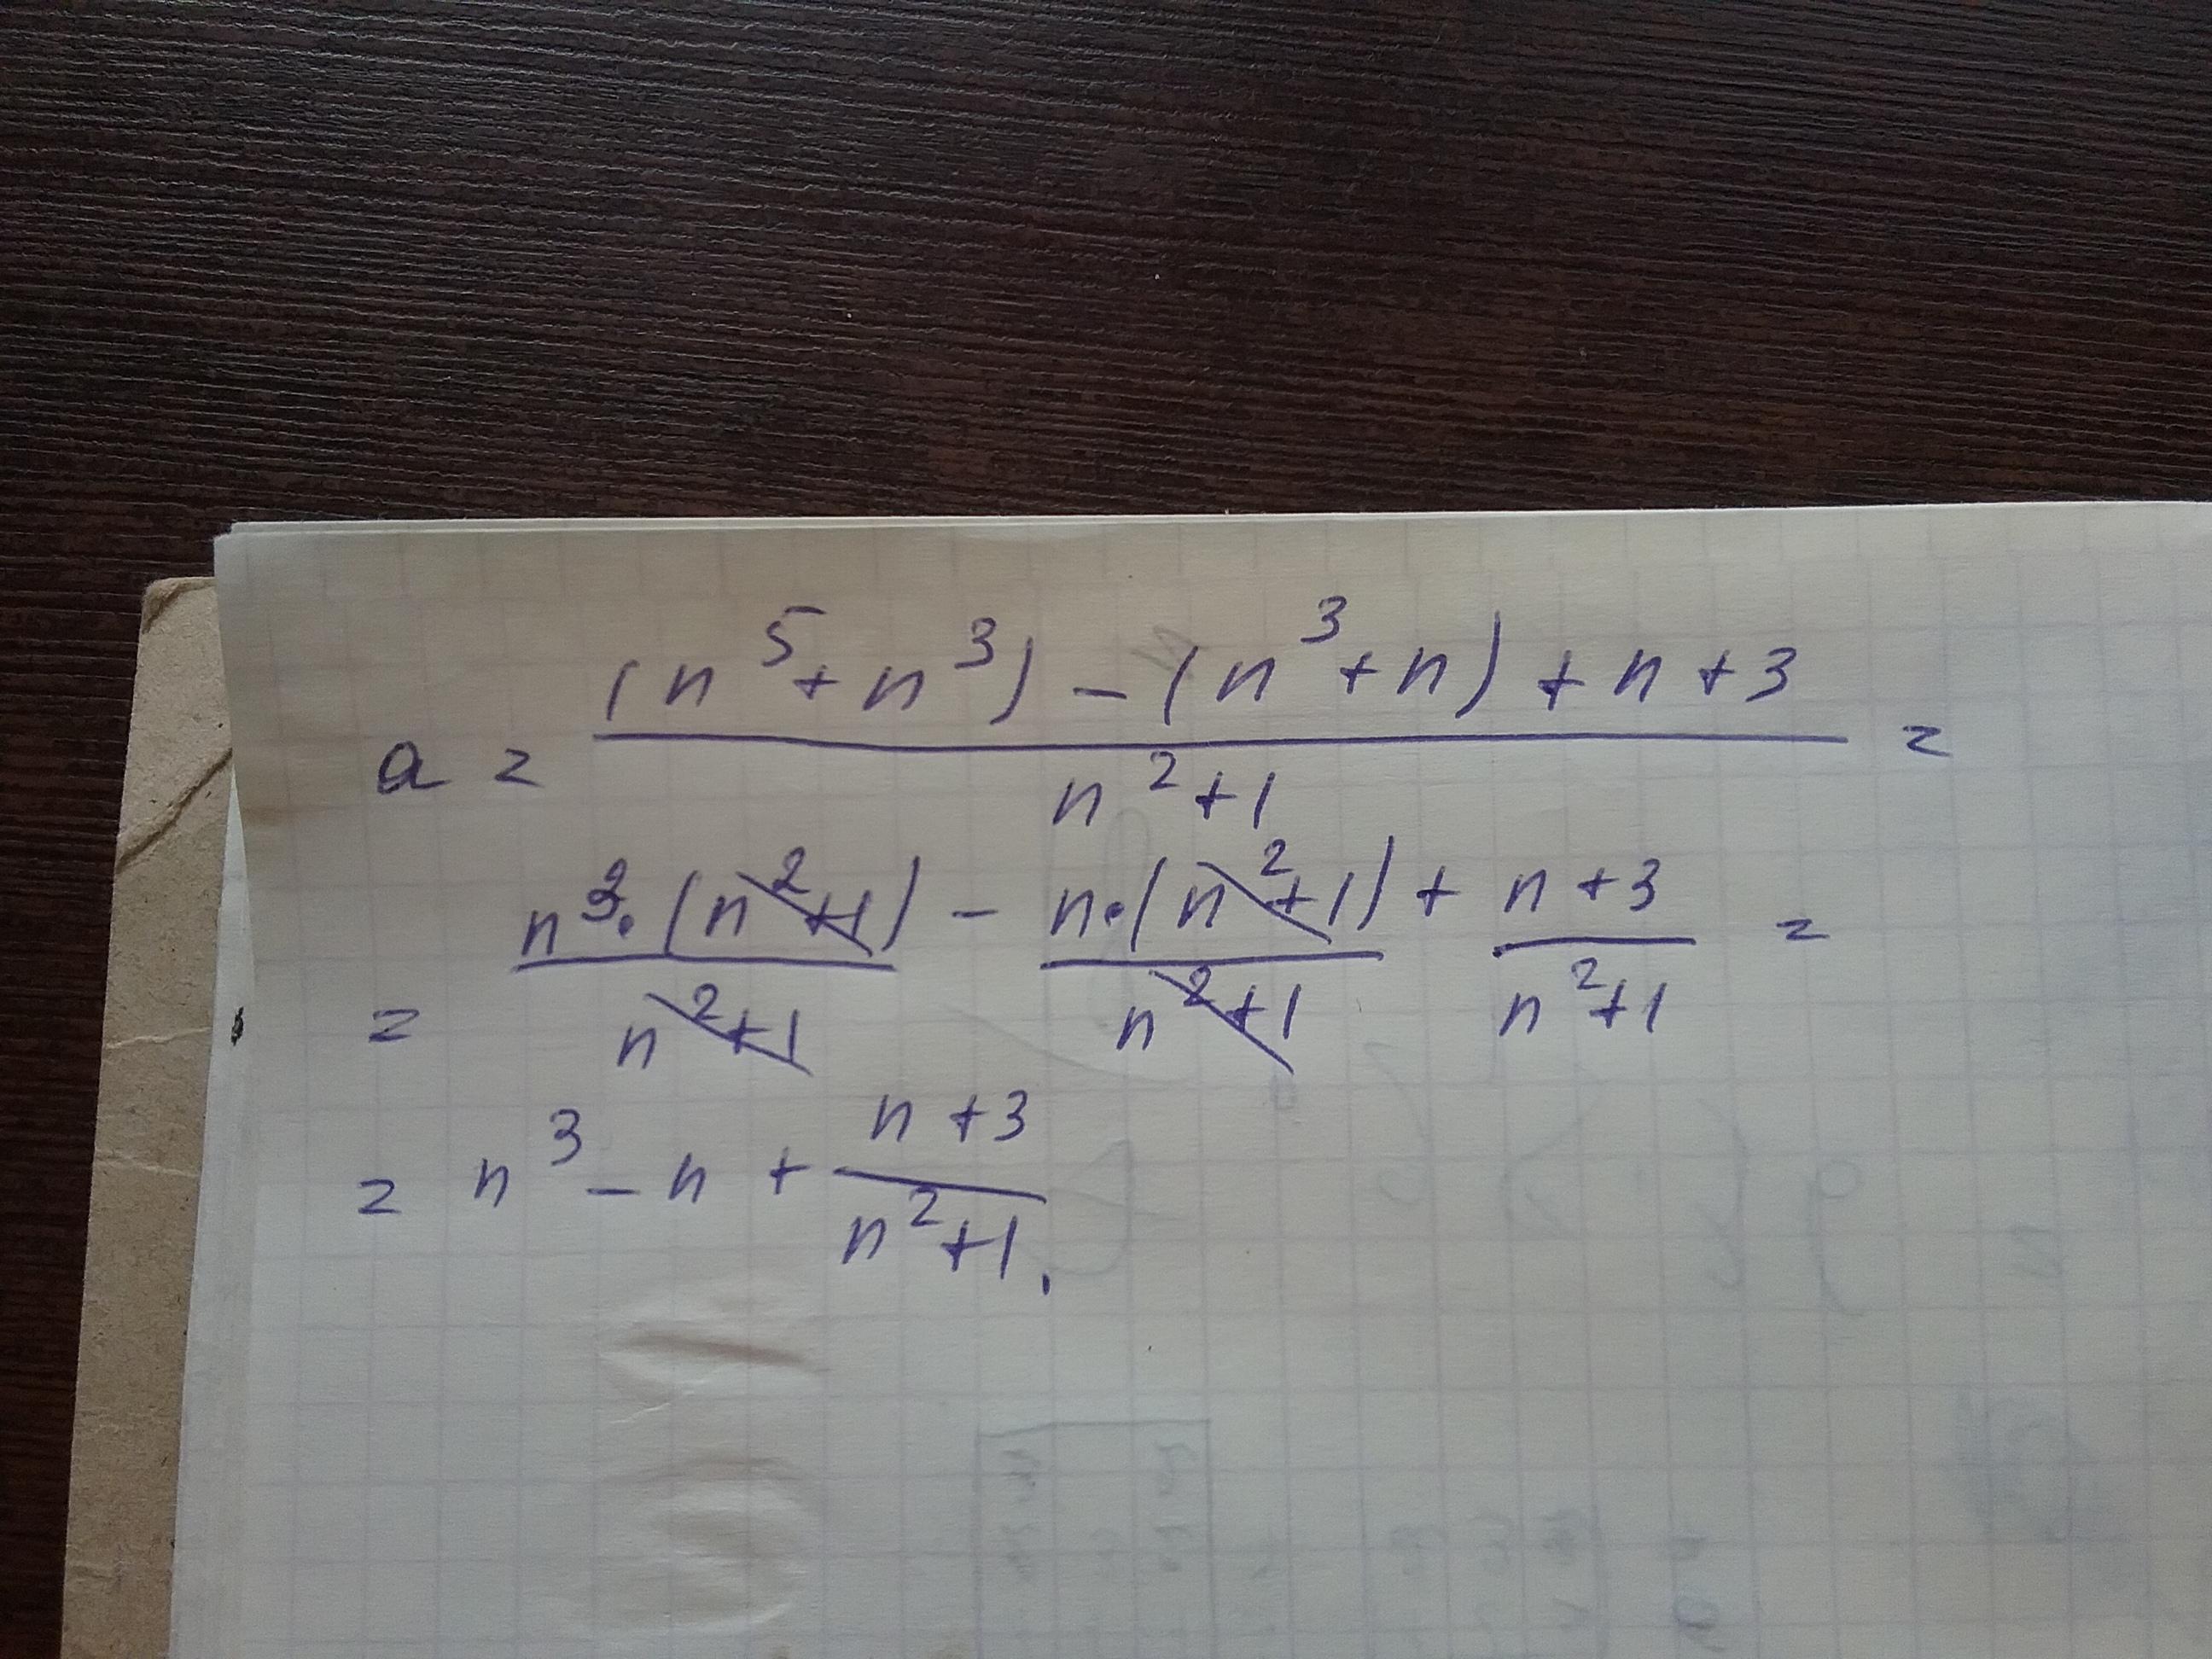 a = ((n⁵ + n³) - (n³ + n) + n + 3) / (n² + 1) =
= (n³ · (n² + 1)) / (n² + 1) - (n · (n² + 1)) / (n² + 1) + (n + 3) / (n² + 1) =
= n³ - n + (n + 3) / (n² + 1).